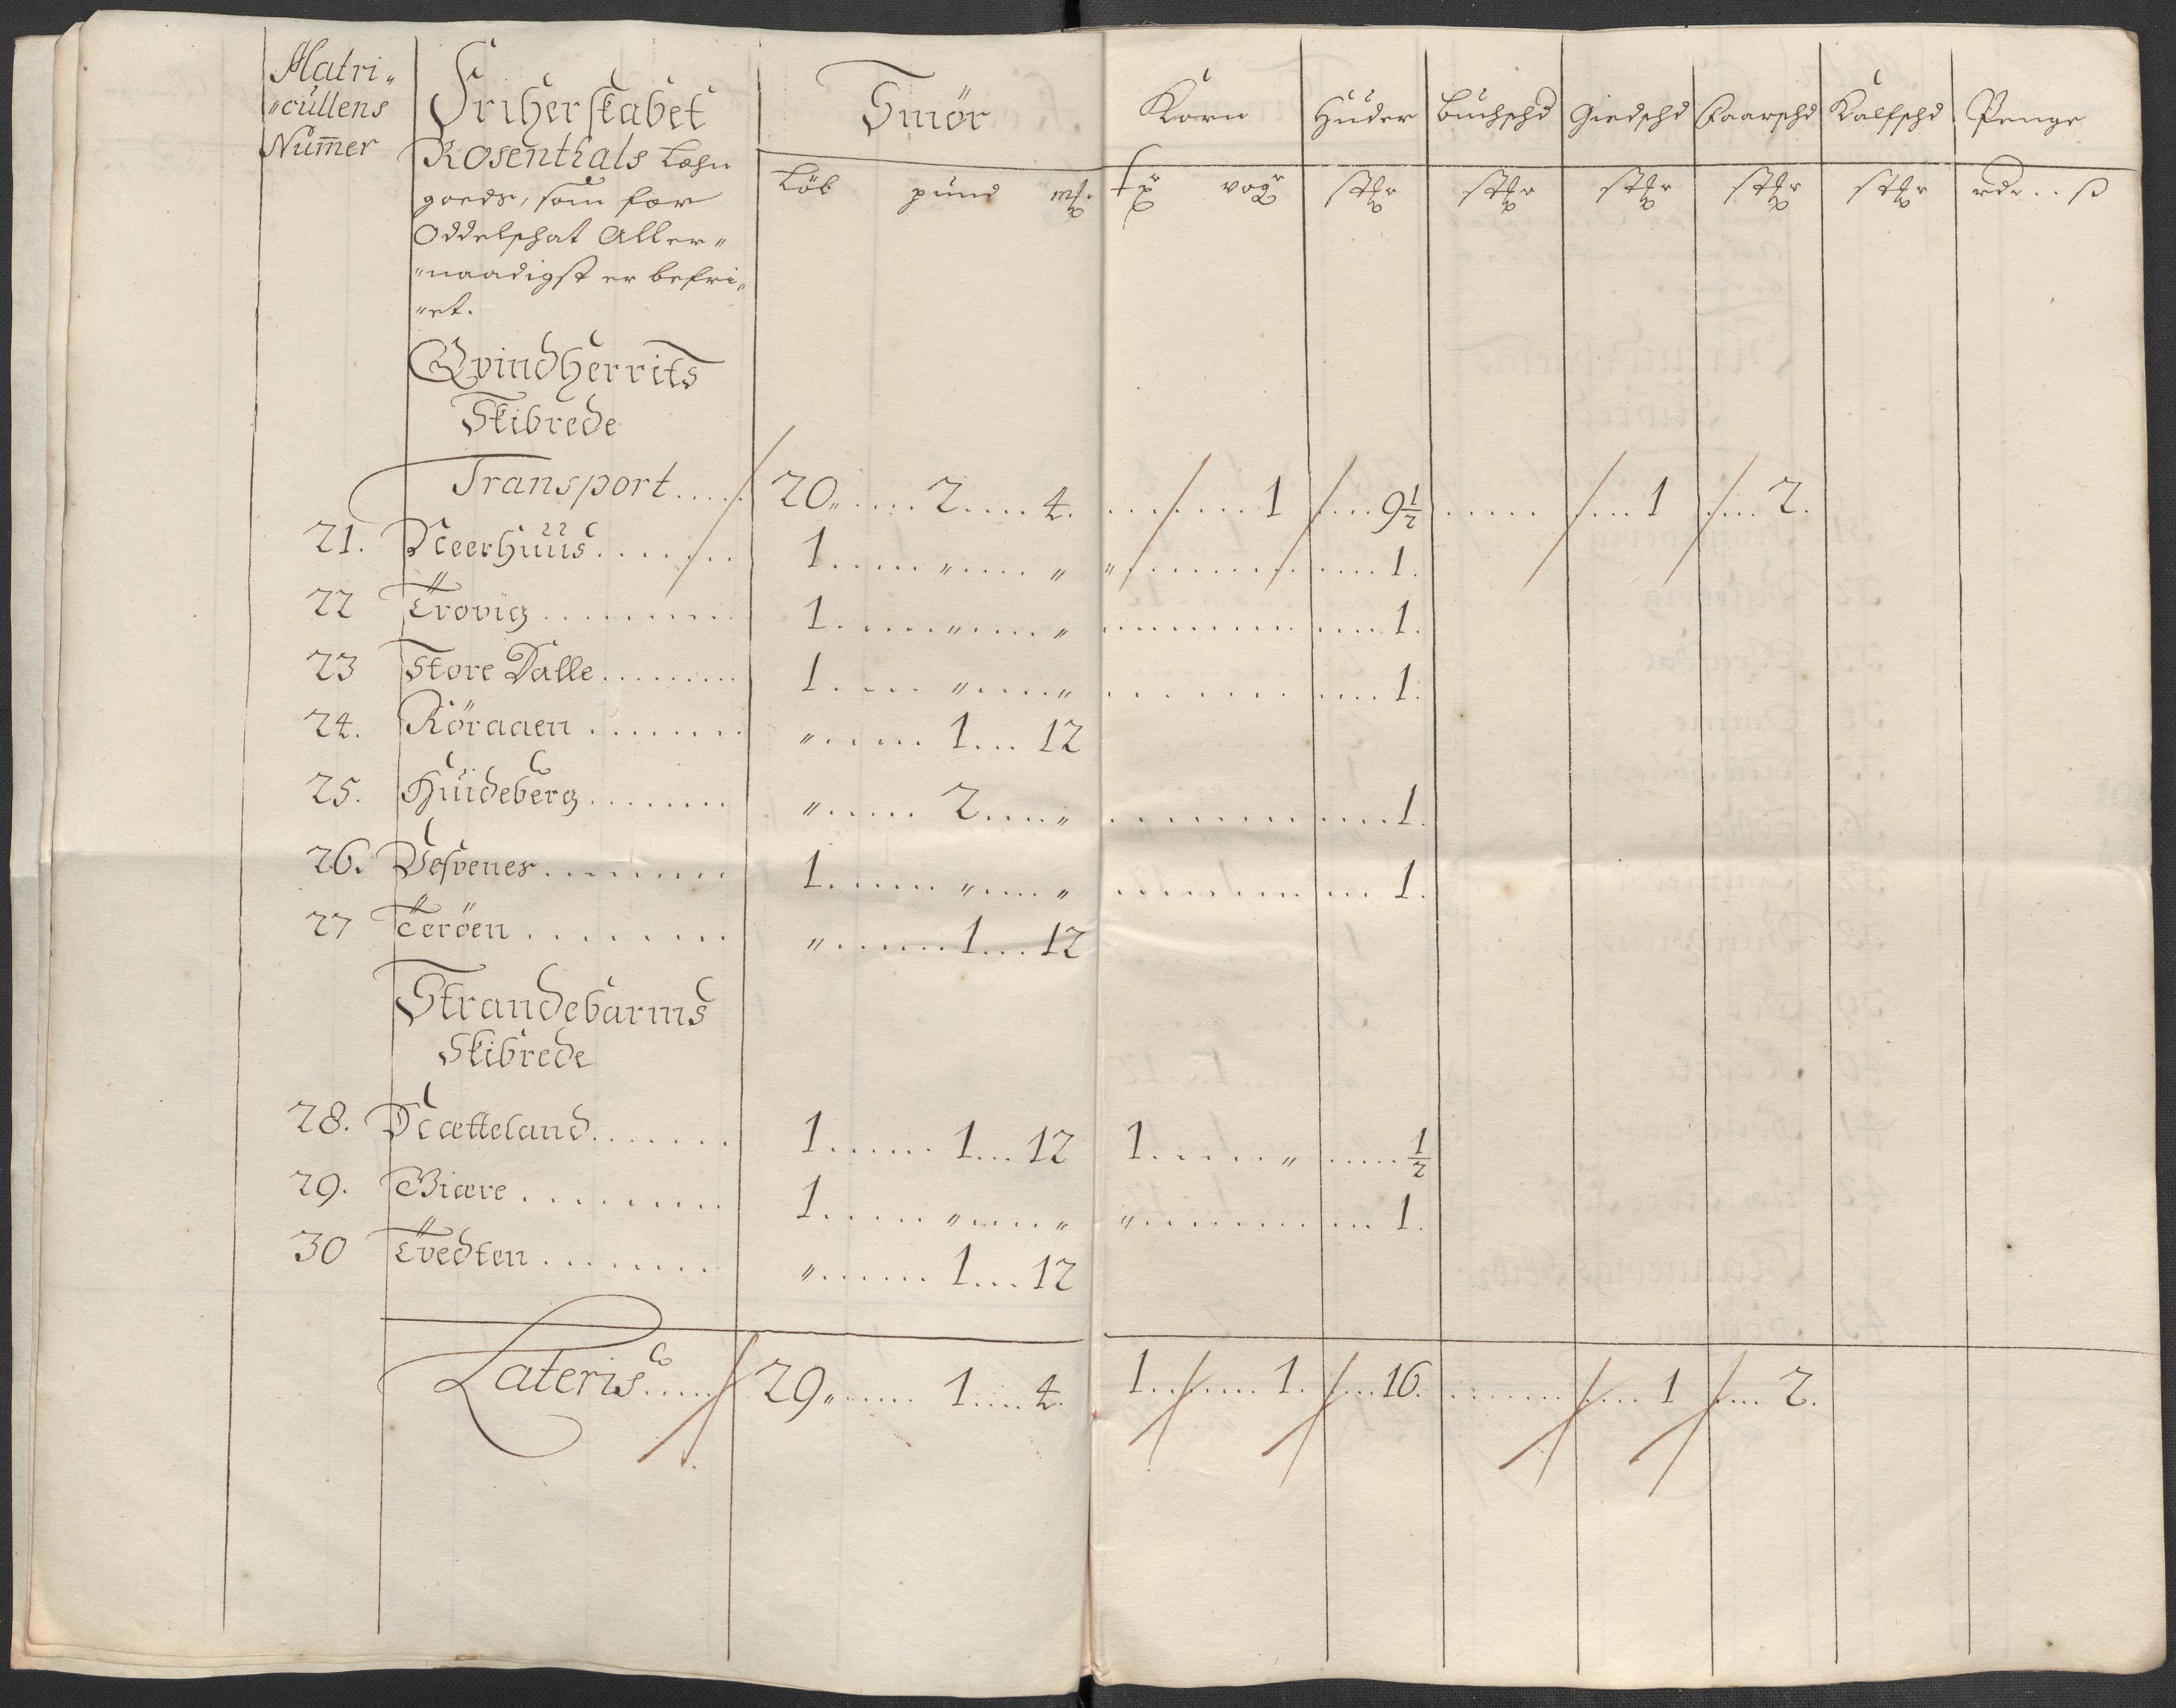 Matri„
„cullens
Num̅er
Friherskabet
Rosenthals Lehn
goeds, som for
Oddelschat Aller„
„naadigst er befri„
„et.
Smör
Korn
Huder
Buchschd
Giedschd
Faarschd
Kalfschd
Penge
Löb pund mk.
vogr
stkr
stkr
stkr
stkr
stkr
rdr.. ß
Qvindherrits
Skibrede
Transport..... 20„.... 2.... 4. ....... 1 .... 9½ ..... .... 1 .... 2.
21. Neerhuus....... 1..... „.... „ „......... .... 1.
22 Trovig......... 1..... „.... „ ......... .... 1.
23 Store Dalle......... 1.... „.... „ ......... .... 1.
24. Röraaen........ „..... 1... 12
25. Huideberg........ „..... 2.... „ ......... .... 1.
26. Vesvenes........ 1...... „.... „ ......... ... 1.
27 Teröen........ „...... 1... 12
Strandebarms
Skibrede
28. Nætteland....... 1...... 1... 12 1..... „ ..... ½
29. Giære........ 1..... „.... „ „........ ... 1.
30 Tvedten........ „...... 1... 12
Lateris..... 29„..... 1.... 4. 1....... 1. .... 16. ....... .... 1 .... 2.